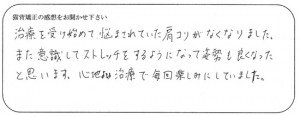 露骨矯正の感想をお聞かせ下さい
治療を受け始めて悩まされていた肩コリがなくなりました。
また意識してストレッチをするようになって姿勢も良くなった
と思います。心地よい治療で毎回楽しみにしていました。